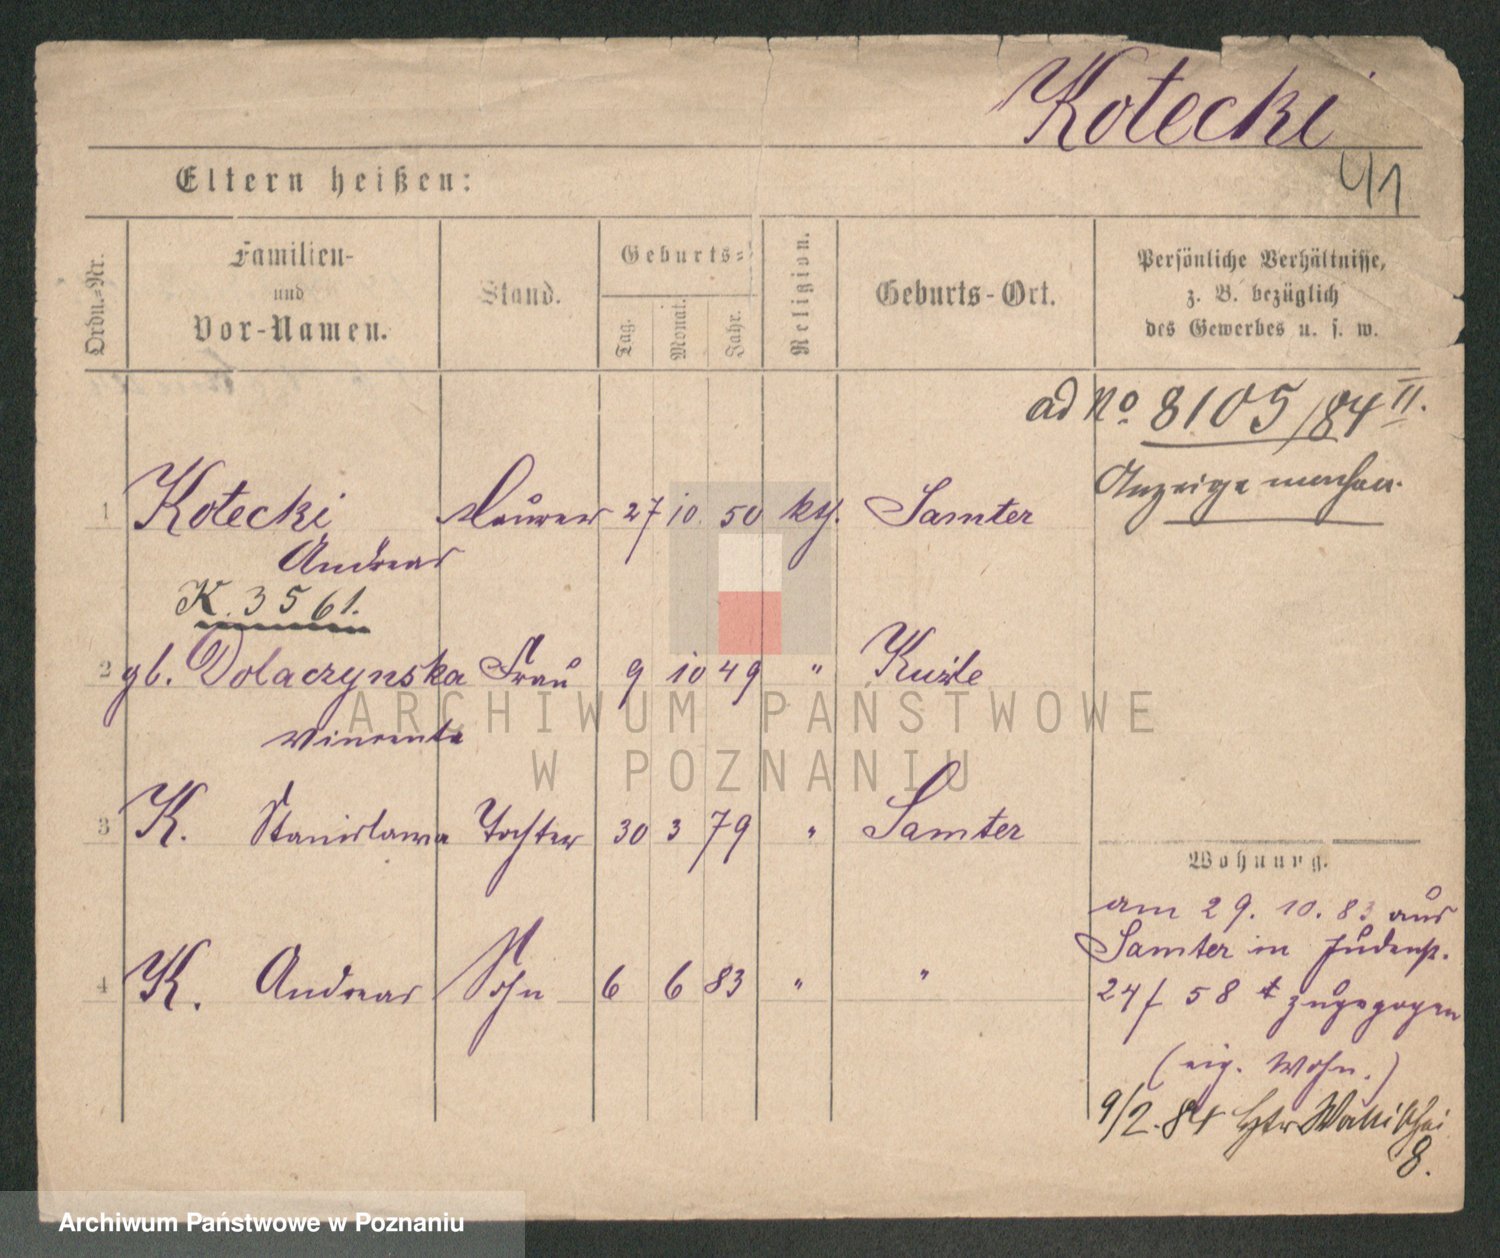 Kotecki
41
Eltern heißen:
Ordn.-Nr.
Familien-
und
Vor-Namen.
Stand.
Geburts-
Tag.
Monat.
Jahr.
Religion.
Geburts-Ort.
Persönliche Verhältnisse,
z. B. bezüglich
des Gewerbes u. s. w.
ad No 8105/84 II.
Anzeige machen.
1 Kotecki Maurer 27 10. 50 kth. Samter
Andreas
K. 3561.
2 gb. Dolaczynska Frau 9 10 49 " Kuźle
Vincenta
3 K. Stanislawa Tochter 30 3 79 " Samter
4 K. Andreas Sohn 6 6 83 " "
Wohnung.
am 29. 10. 83 aus
Samter in Judenst.
24/ 58 zugezogen
(eig. Wohn.)
9/2. 84 Wallischei
8.
ARCHIWUM PAŃSTWOWE
W POZNANIU
Archiwum Państwowe w Poznaniu